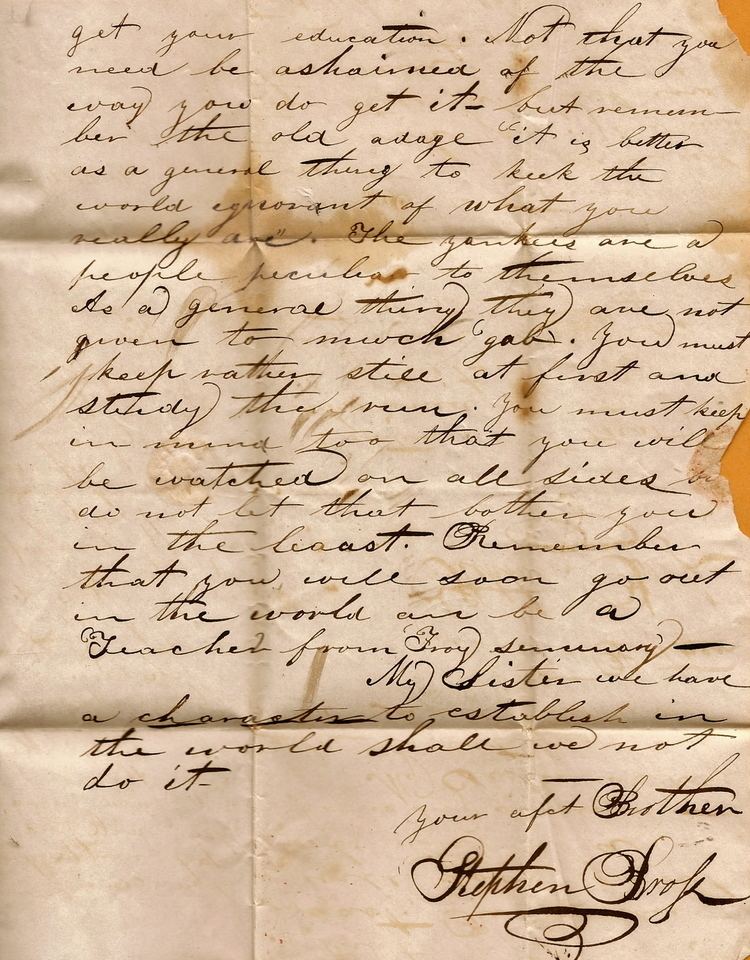 get your education. Not that you
need be ashaimed of the
way you do get it - but remem-
ber the old adage "it is better
as a general thing to keek the
world ignorant of what you
really are". The yankees are a
people peculiar to themselves
As a general thing they are not
given to much gab. You must
keep rather still at first and
study the run. You must keep
in mind too that you will
be watched on all sides
do not let that bother you
in the leaast. Remember
that you will soon go out
in the world an be a
Teacher from Troy seminary -
My Sister we have
a character to establish in
the world shall we not
do it -
your afct Brother
Stephen Bross